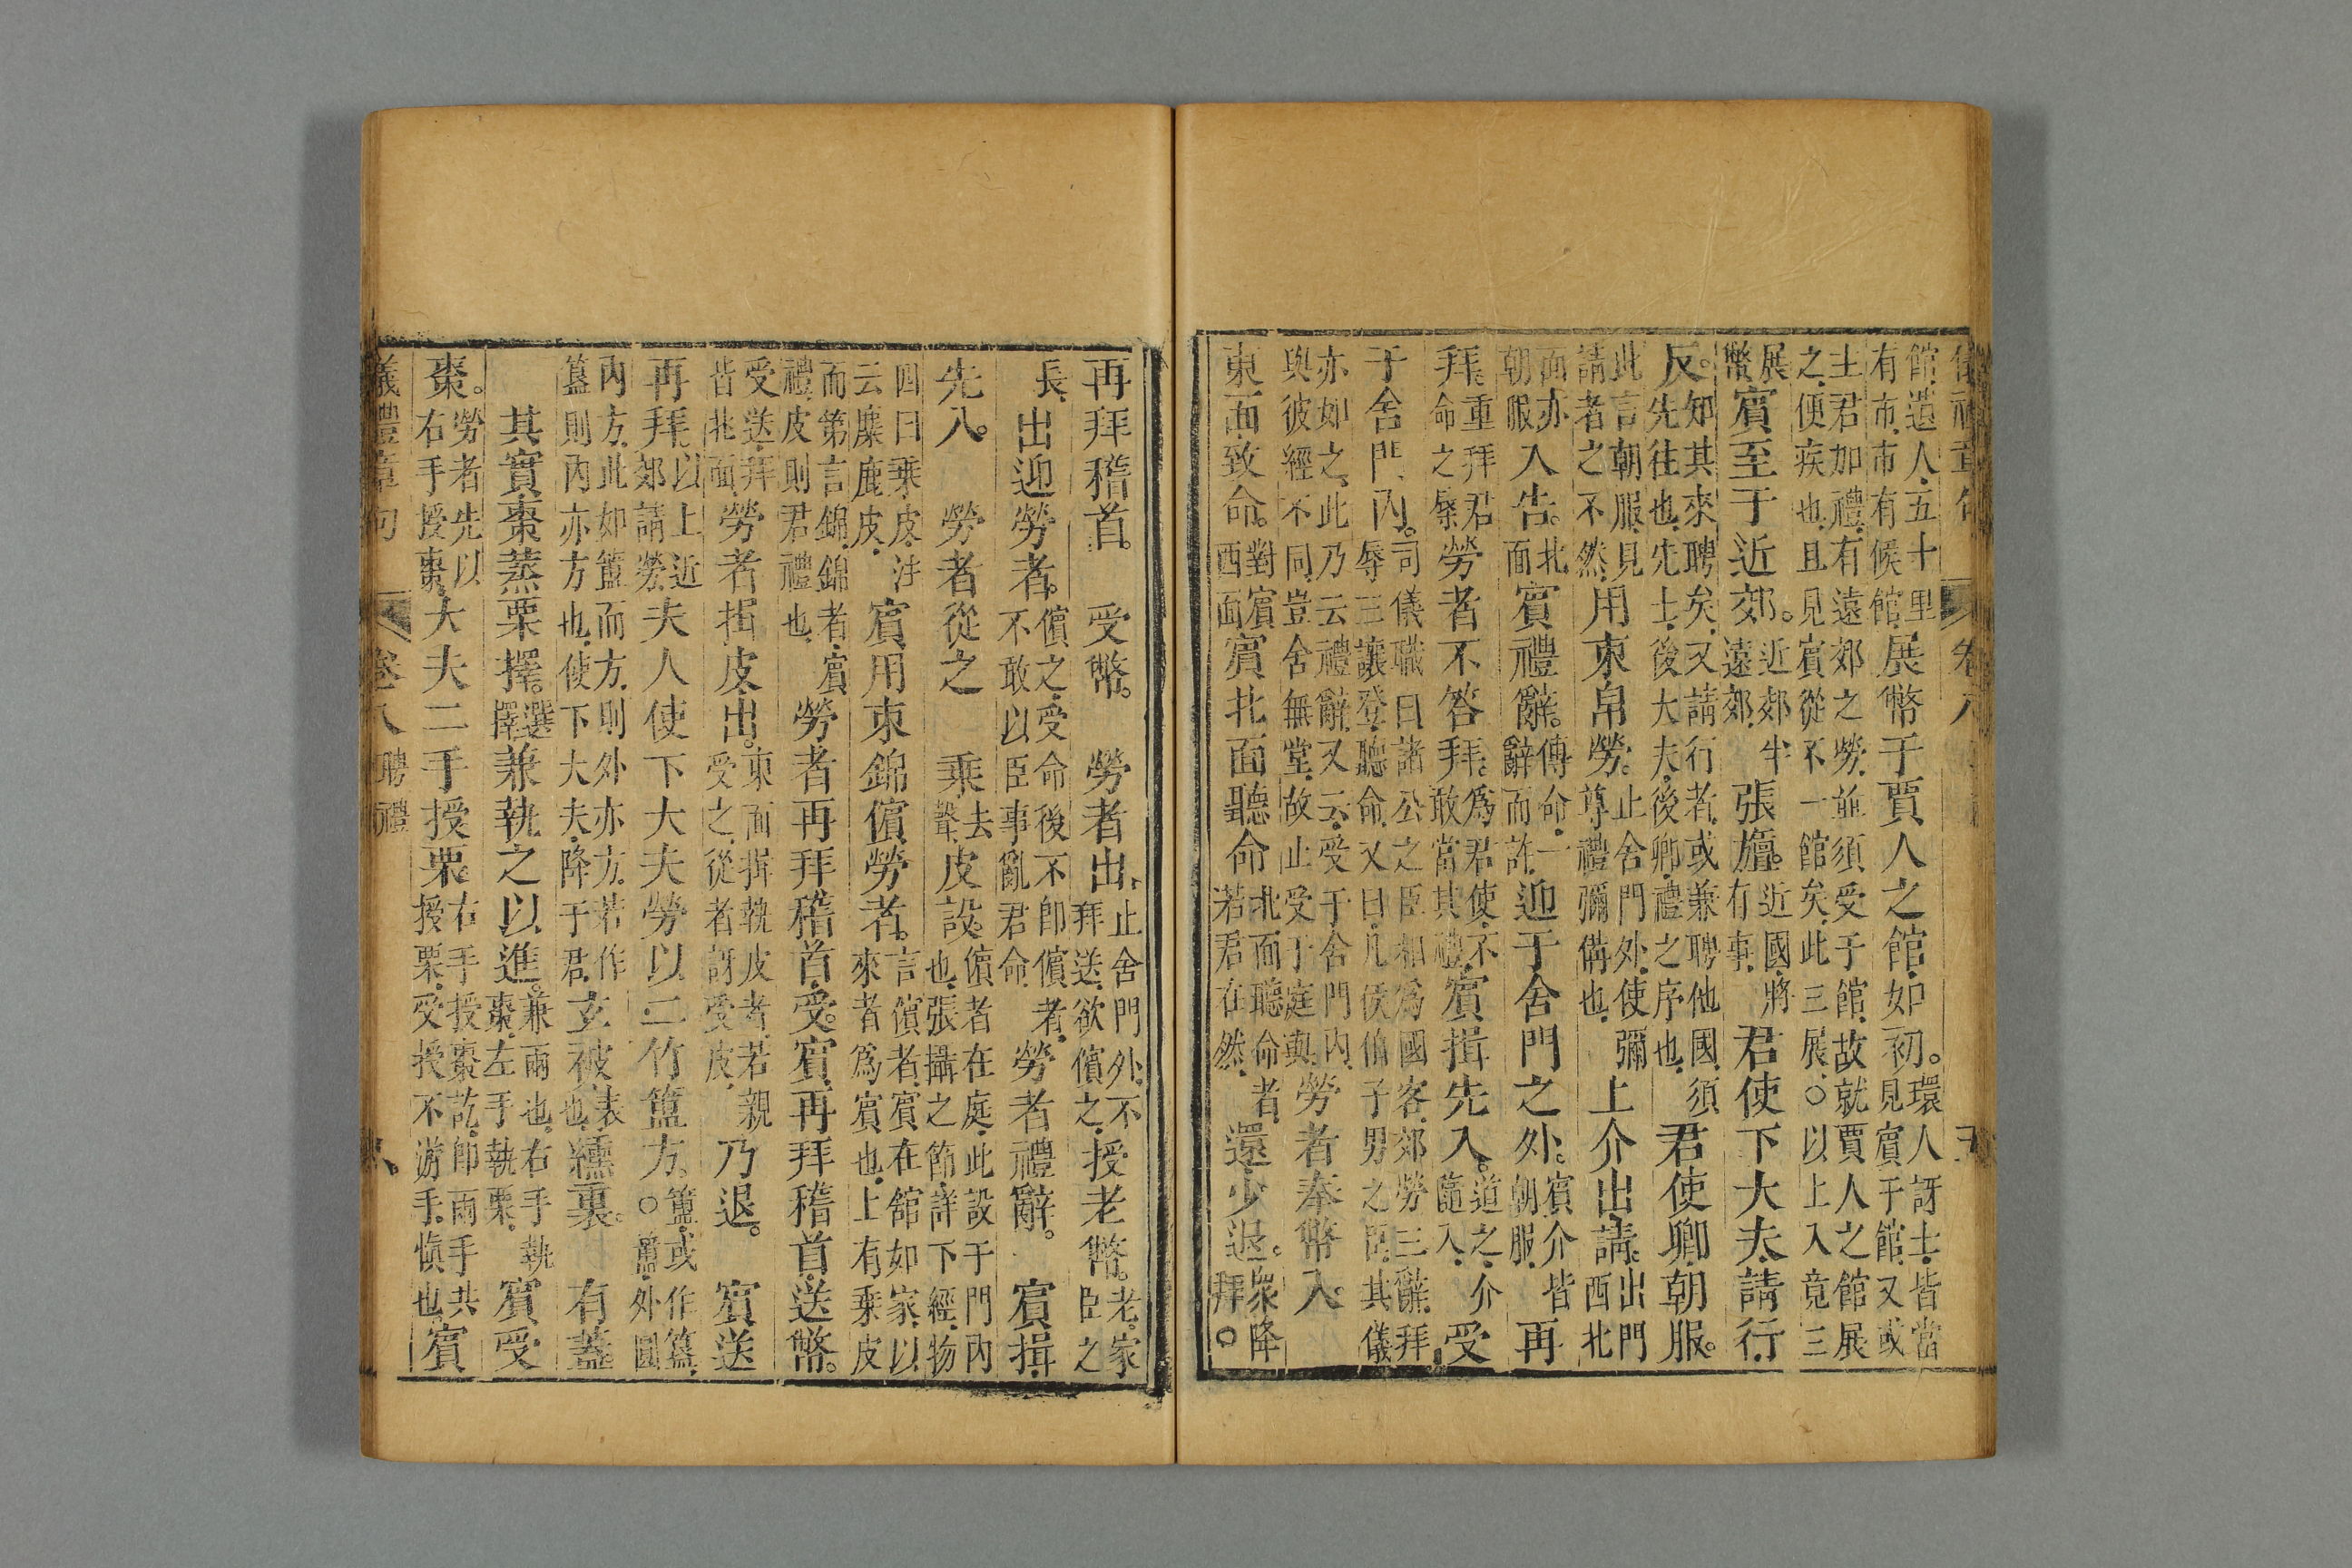 館造人五十里有市市有候館展幣于賈人之館如初。環人訝士皆當見賓于館又或
土君加禮有遠郊之勞並須受于館故就賈人之館展之便疾也且見賓從不一館矣此三展○以上入竟三
展幣賓至于近郊。近郊半遠郊張旜。近國將有事君使下大夫請行
反。知其來聘矣又請行者或兼聘他國須先往也先士後大夫後卿禮之序也君使卿朝服。
此言朝服見請者之不然用束帛勞。止舍門外使彌尊禮彌備也上介出請。出門西北
面亦朝服入告。北面賓禮辭。傳命一辭而許迎于舍門之外。賓介皆朝服再
拜。重拜君命之辱勞者不答拜。爲君使不敢當其禮賓揖先入。道之介隨入受
于舍門內。司儀職曰諸公之臣相爲國客郊勞三辭拜辱三讓登聽命又曰凡侯伯子男之臣其儀
亦如之此乃云禮辭又云受于舍門內與彼經不同豈舍無堂故止受于庭與勞者奉幣入。
東面致命。對賓西面賓北面聽命北面聽命者若君在然還少退。衆降拜○
再拜稽首。受幣。勞者出止舍門外不拜送欲儐之授老幣。老家臣之
長出迎勞者。儐之受命後不卽儐者不敢以臣事亂君命勞者禮辭。賓揖
先入。勞者從之乘去聲皮設。儐者在庭此設于門內也張攝之節詳下經物
四曰乘皮注云麋鹿皮賓用束錦儐勞者。言儐者賓在館如家以來者爲賓也上有乘皮
而第言錦錦者賓禮皮則君禮也勞者再拜稽首受。賓再拜稽首送幣。
受送拜皆北面勞者揖皮出。東面揖執皮者若親受之從者訝受皮乃退。賓送
再拜。以上近郊請勞夫人使下大夫勞以二竹簠方。簠或作簋○簠外圓
內方此如簠而方則外亦方若作簋則內亦方也使下大夫降于君玄被表也纁裏。有蓋
其實棗蒸栗擇。選擇兼執之以進。兼兩也右手執棗左手執栗賓受
棗。勞者先以右手授棗大夫二手授栗。右手授棗訖卽兩手共授栗受授不游手愼也賓
儀禮章句 卷八 聘禮 六